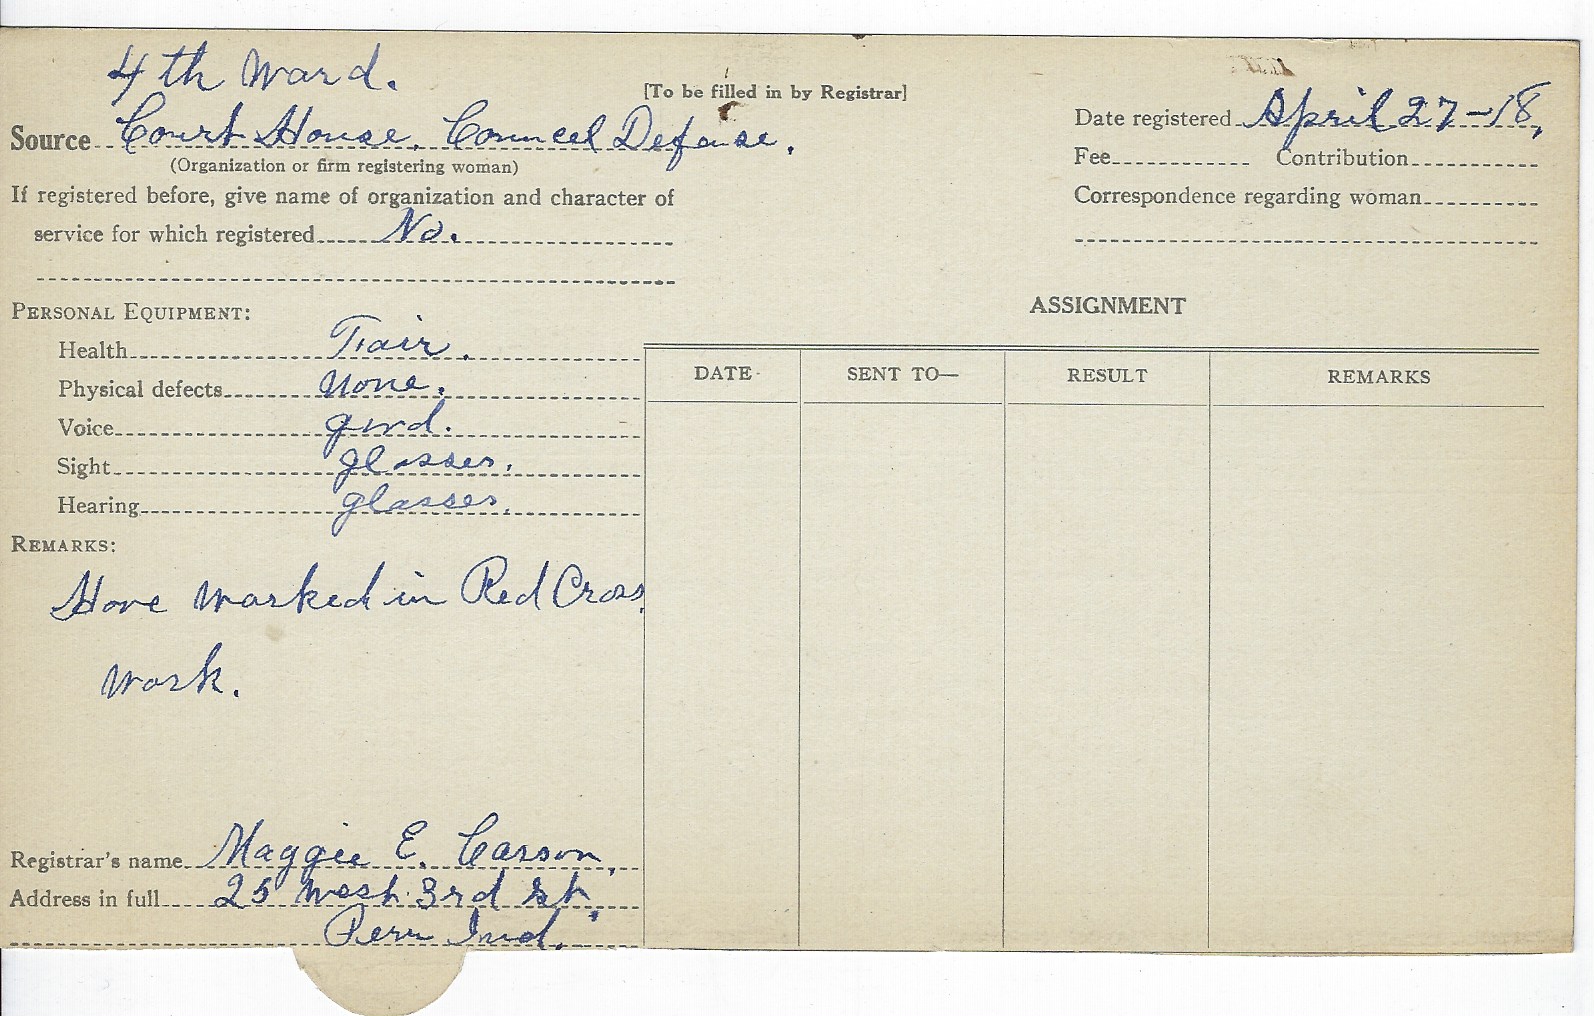 4th Ward.
[To be filled in by Registrar]
Source Court House. Councel Defense.
(Organization or firm registering woman)
Date registered April 27-18,
Fee Contribution
If registered before, give name of organization and character of
service for which registered No.
Correspondence regarding woman
PERSONAL EQUIPMENT:
Health Fair.
Physical defects none.
Voice good.
Sight glasses.
Hearing glasses.
REMARKS:
Have worked in Red Cross
work.
Registrar's name Maggie E. Carson,
Address in full 25 West 3rd St,
Peru Ind.
ASSIGNMENT
DATE SENT TO— RESULT REMARKS